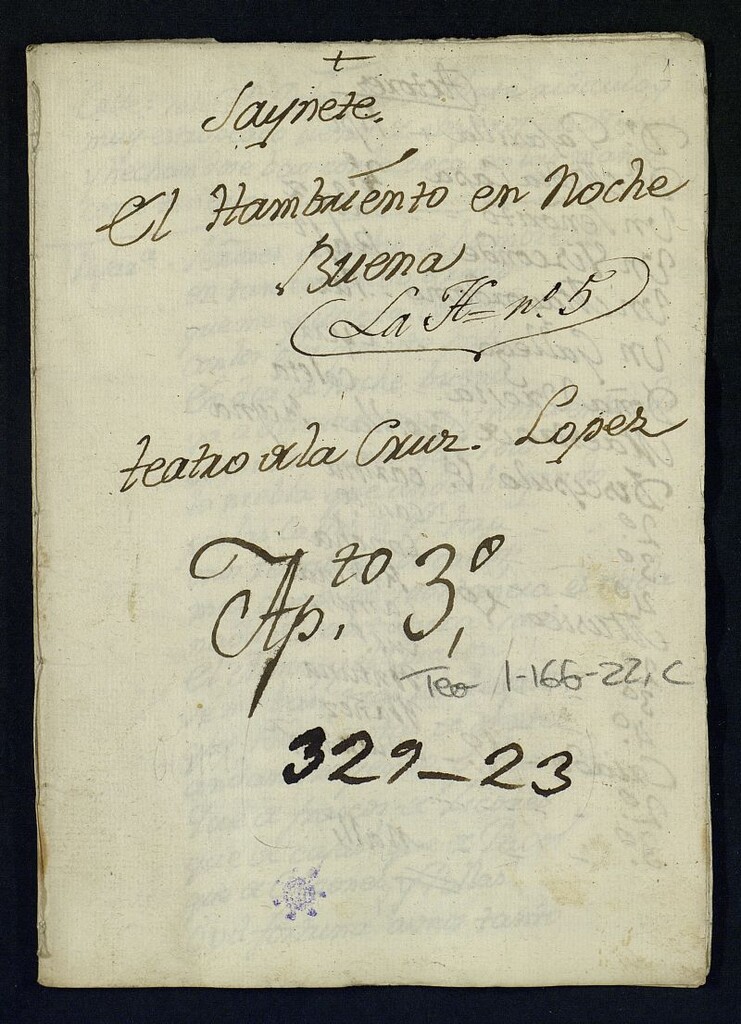 +
Saynete.
El Hambriento en Noche
Buena
La H= nº. 5
teatro de la Cruz. Lopez
Ap.to 3º,
Tea 1-166-22, C
329-23